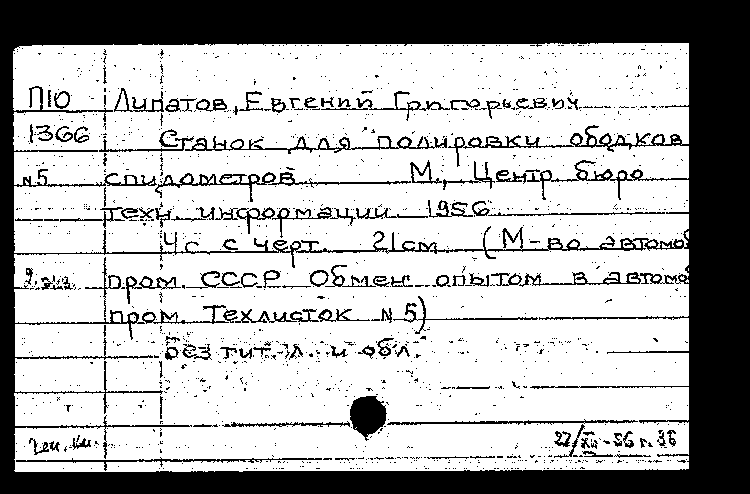 П10 Липатов, Евгений Григорьевич
1366 Станок для полировки ободков
N5 спидометров М., Центр. бюро
техн. информации. 1956.
4с. с черт. 21см (М-во автомоб
2 экз. пром. СССР. Обмен опытом в автомоб
пром. Техлисток N5)
Без тит. л. и обл.
22/XII-56 г.